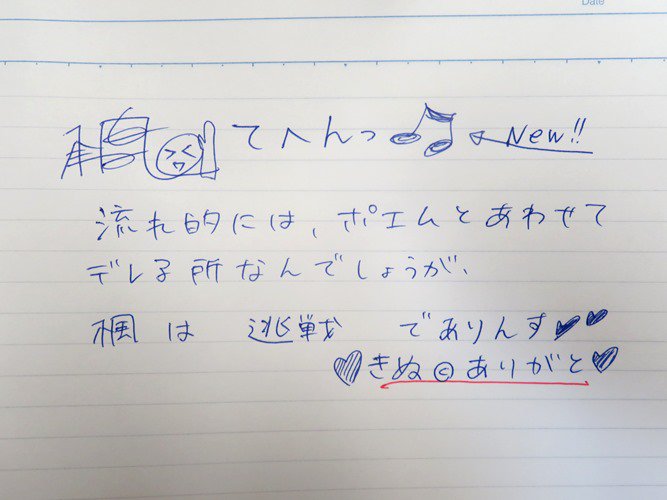 Date
てへんっ New!!
流れ的には、ポエムとあわせて
デレる所なんでしょうが、
楓は 逃戦 でありんす
きぬ©ありがと